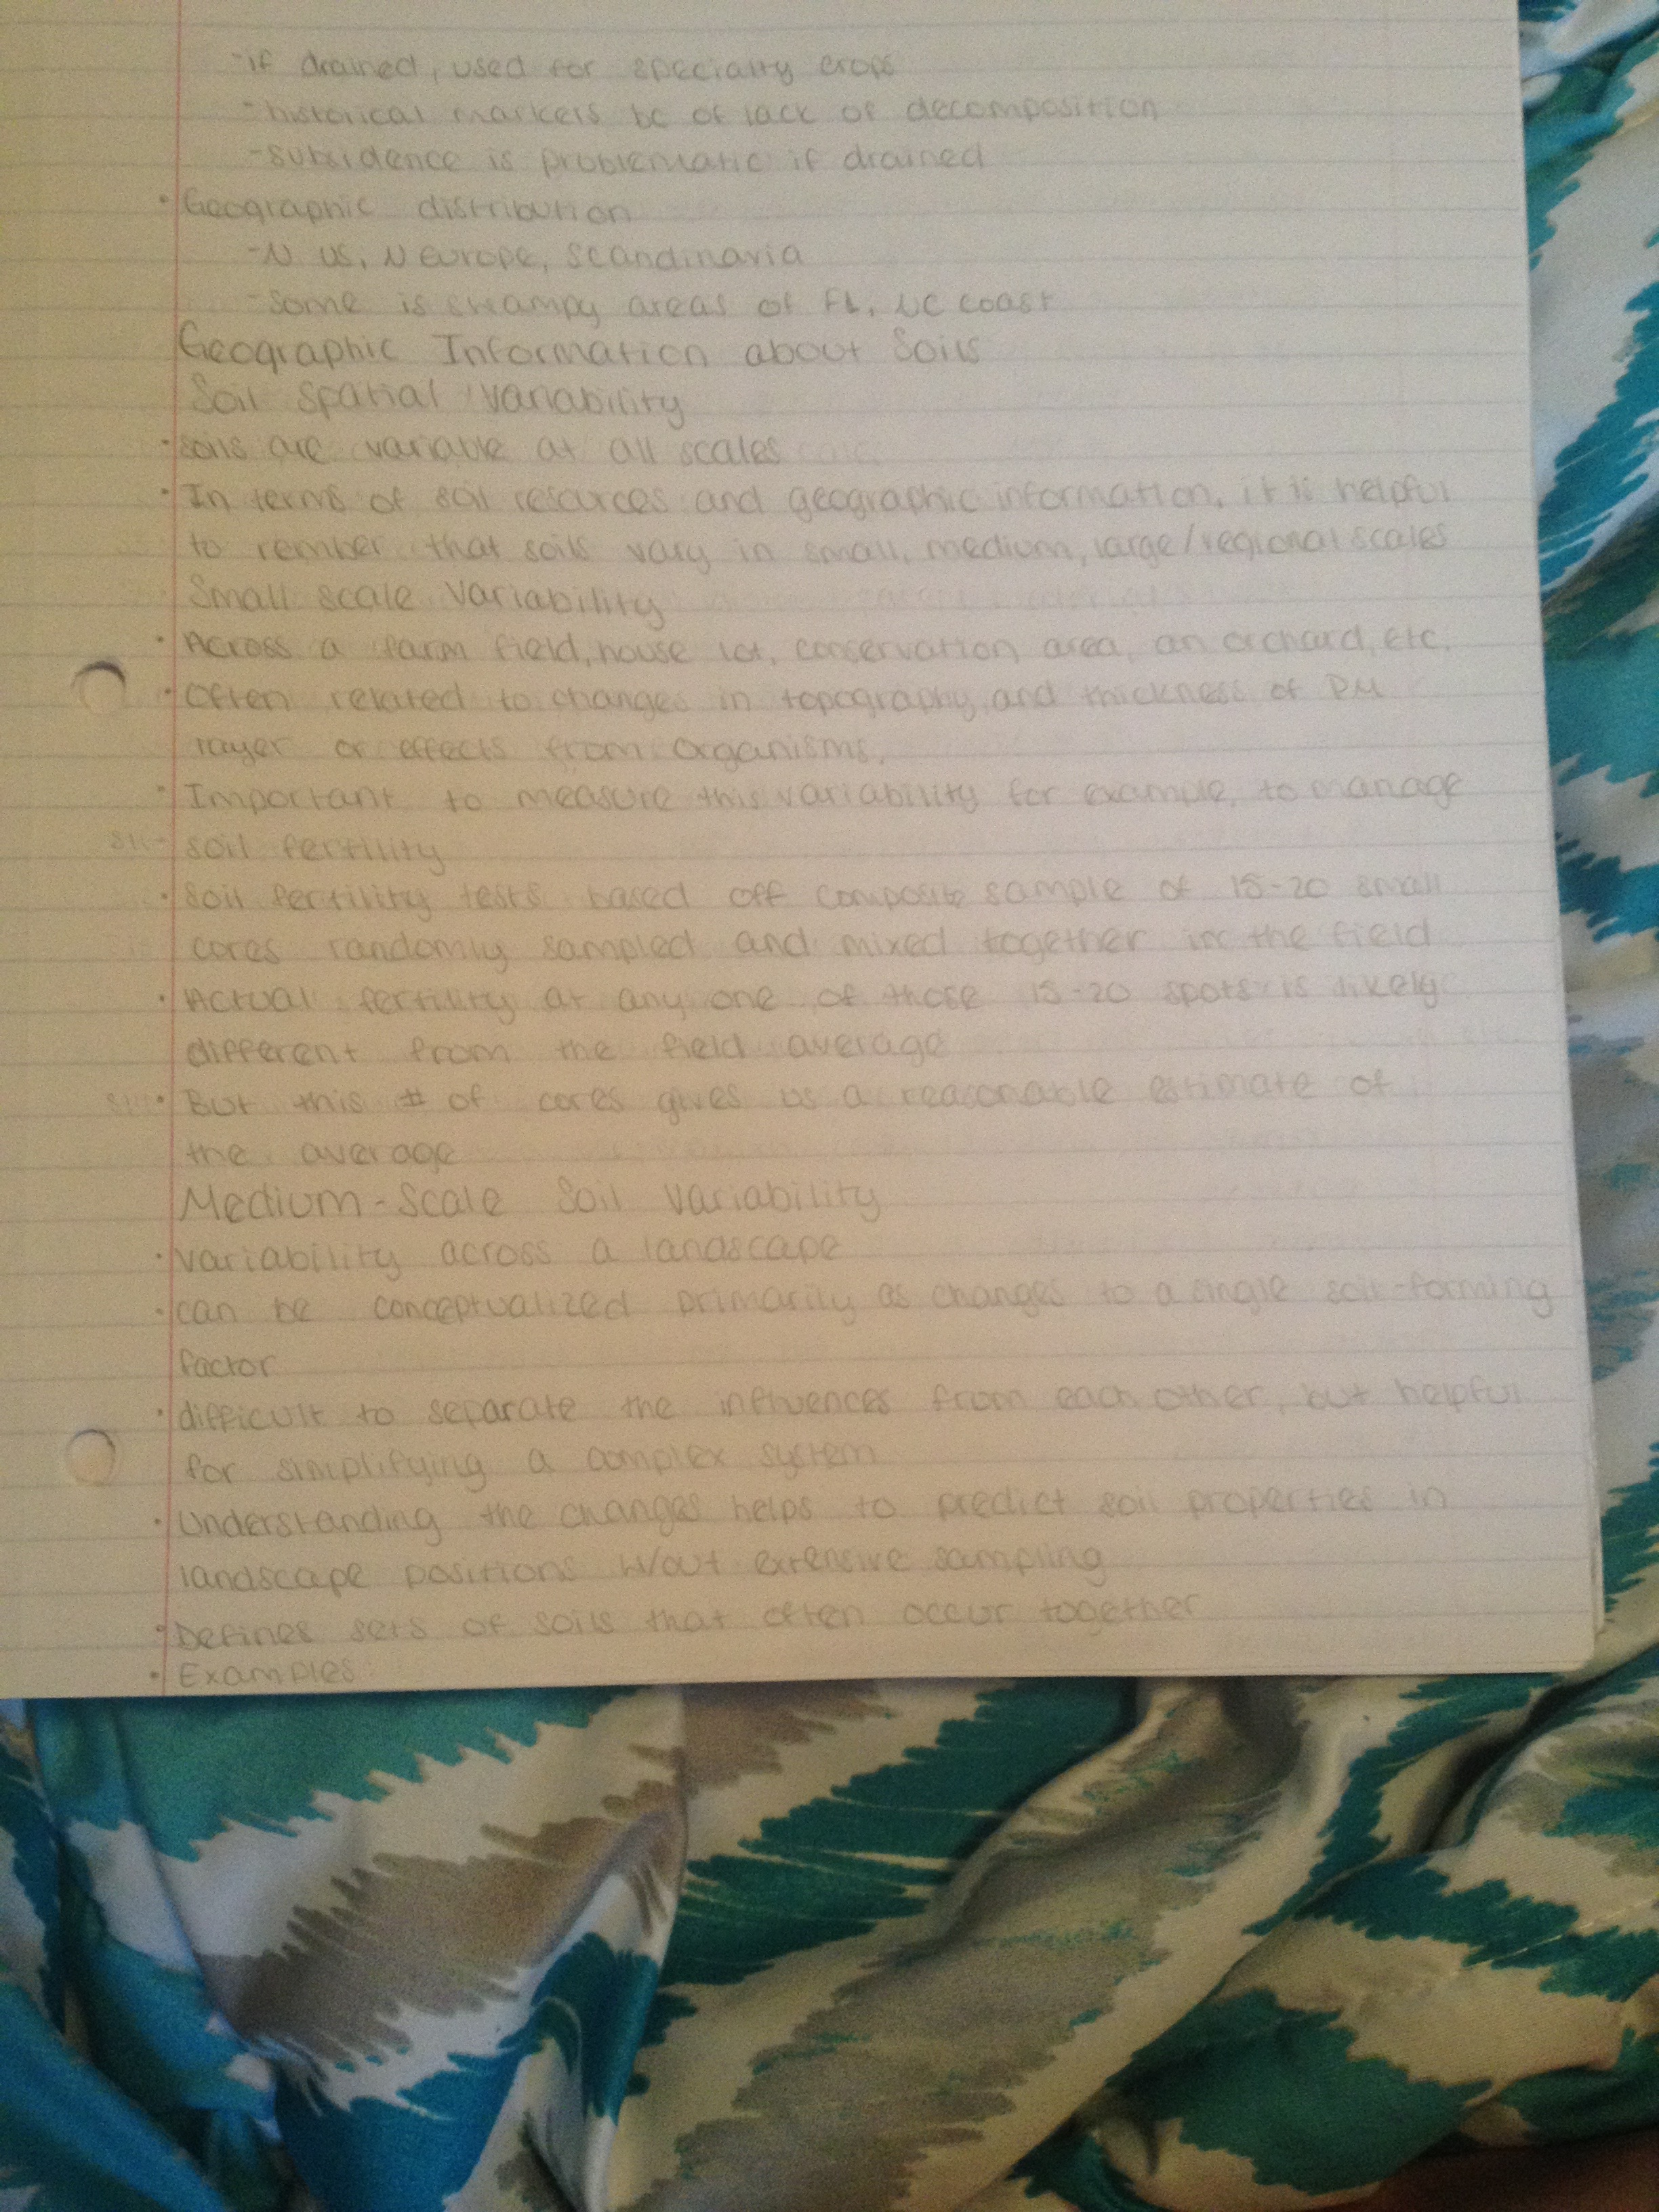 -if drained, used for specialty crops
-historical markers bc of lack of decomposition
-subsidence is problematic if drained
• Geographic distribution
-N US, N europe, Scandinavia
-Some is swampy areas of FL, NC coast
Geographic Information about Soils
Soil Spatial Variability
• soils are variable at all scales
• In terms of soil resources and geographic information, it is helpful
to rember that soils vary in small, medium, large/regional scales
Small scale Variability
• Across a farm field, house lot, conservation area, an orchard, etc.
• Often related to changes in topography and thickness of PM
layer or effects from organisms,
• Important to measure this variability for example, to manage
soil fertility
• Soil fertility tests based off composite sample of 15-20 small
cores randomly sampled and mixed together in the field
• Actual fertility at any one of those 15-20 spots is likely
different from the field average
• But this # of cores gives us a reasonable estimate of
the average
Medium-Scale Soil Variability
• variability across a landscape
• can be conceptualized primarily as changes to a single soil-forming
factor
• difficult to separate the influences from each other, but helpful
for simplifying a complex system
• Understanding the changes helps to predict soil properties in
landscape positions w/out extensive sampling
• Defines sets of soils that often occur together
• Examples